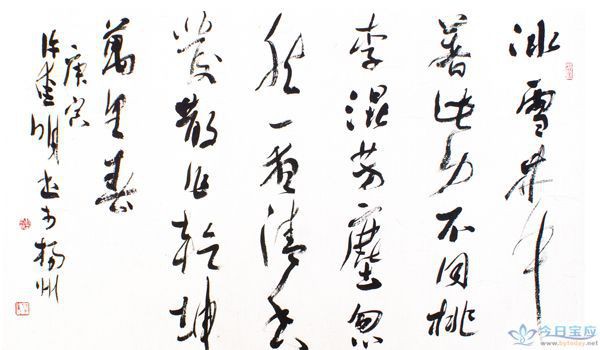 冰雪林中
著此身不同桃
李混芳塵忽
然一夜清香
發散作乾坤
萬里春
庚寅
明書于揚州
今日宝应
www.bytoday.net